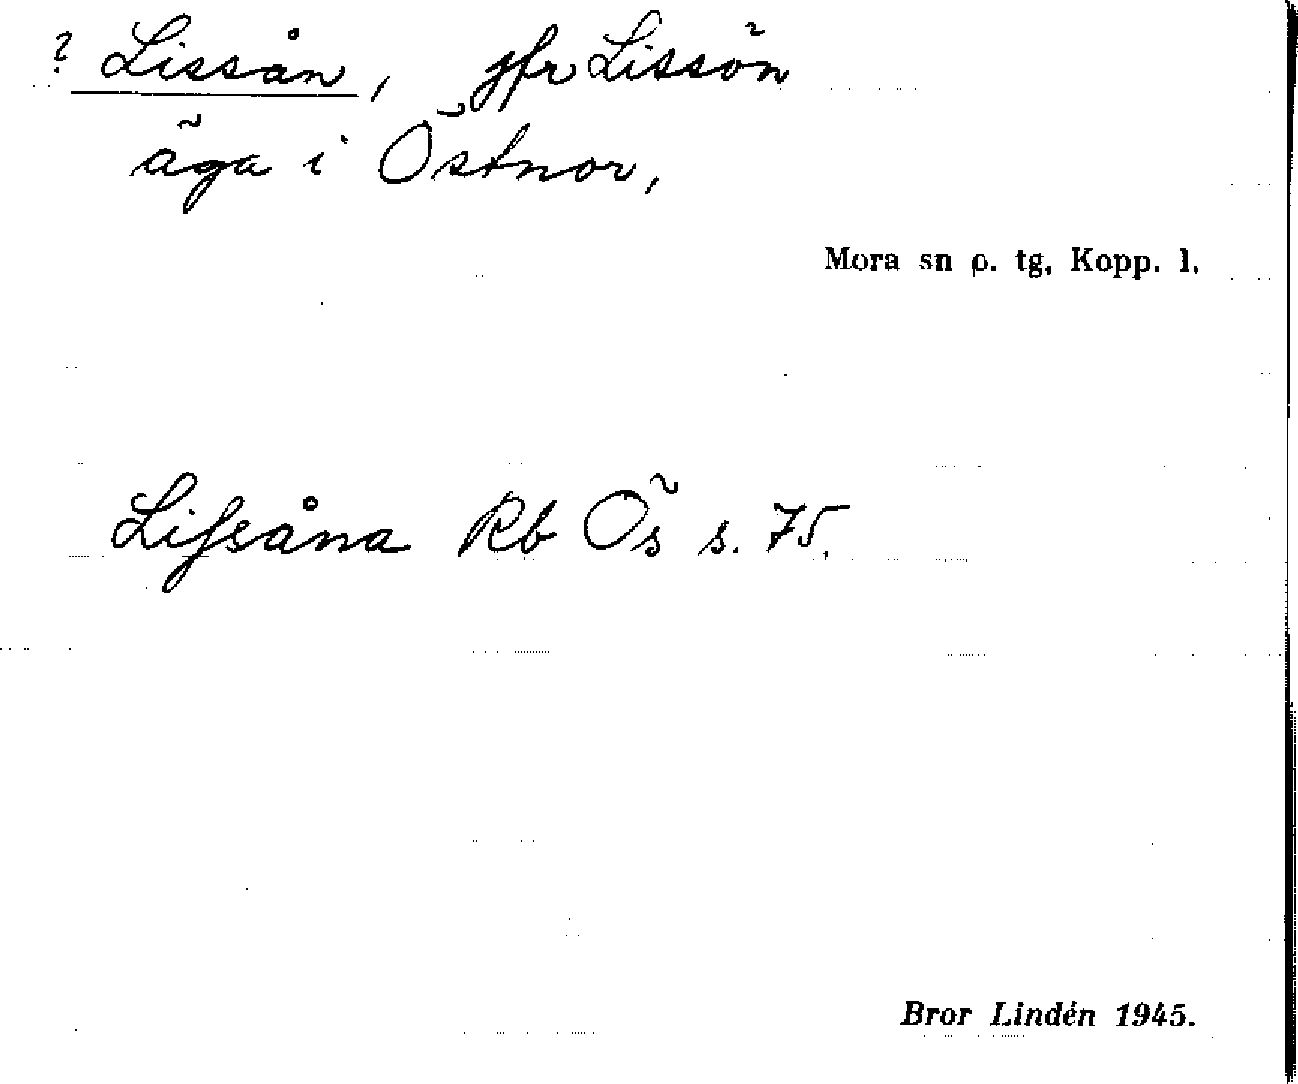 ? Lissån, jfr Lissön
äga i Östnor,
Mora sn o. tg, Kopp. l.
Lifsåna Rb Ös s. 75.
Bror Lindén 1945.